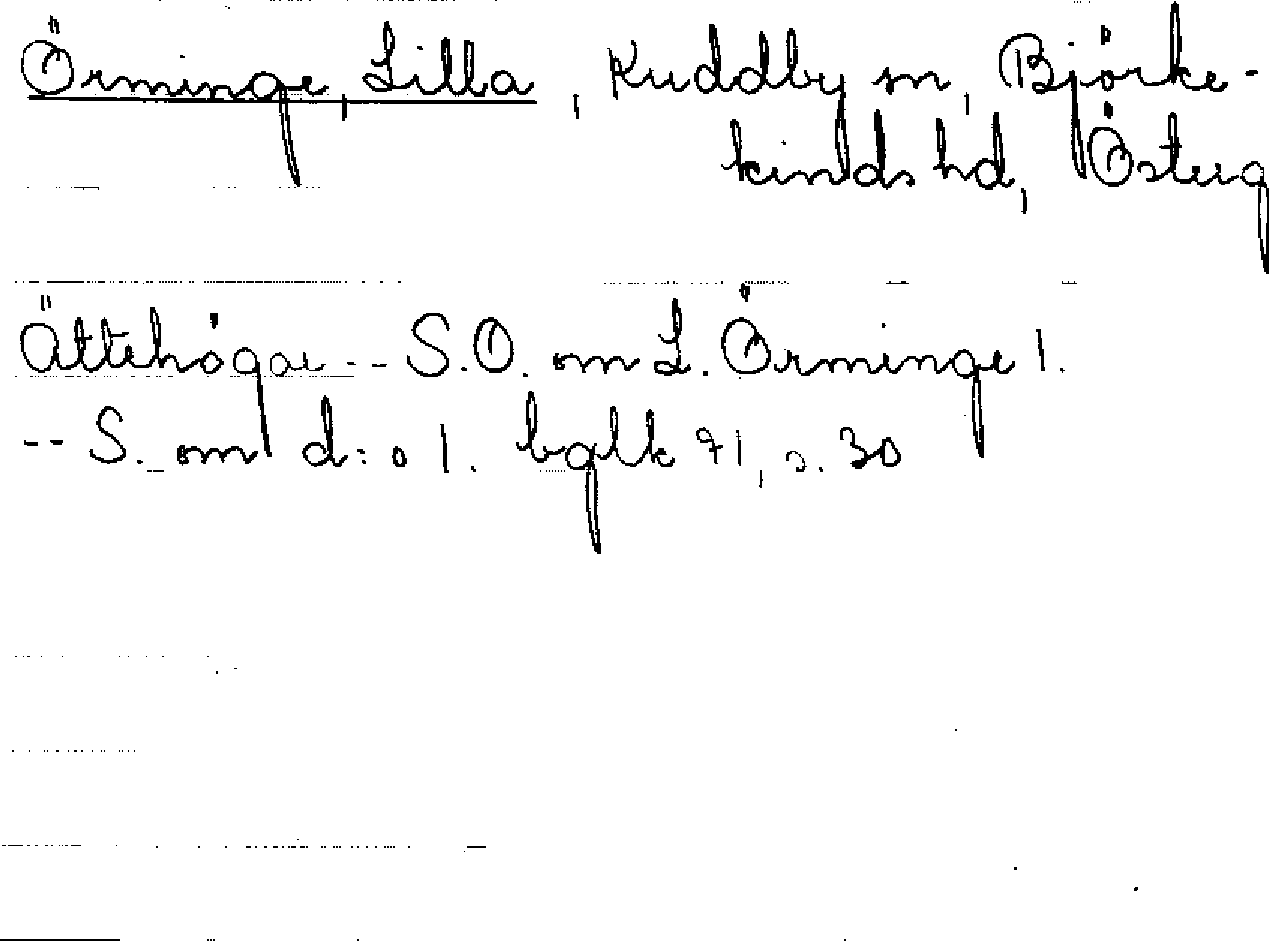 Örminge, Lilla, Kuddby sn, Björke-
kinds hd, Österg
Ättehögar -- S.O. om L. Örminge 1.
-- S. om d:o 1. bglk 71, s. 30